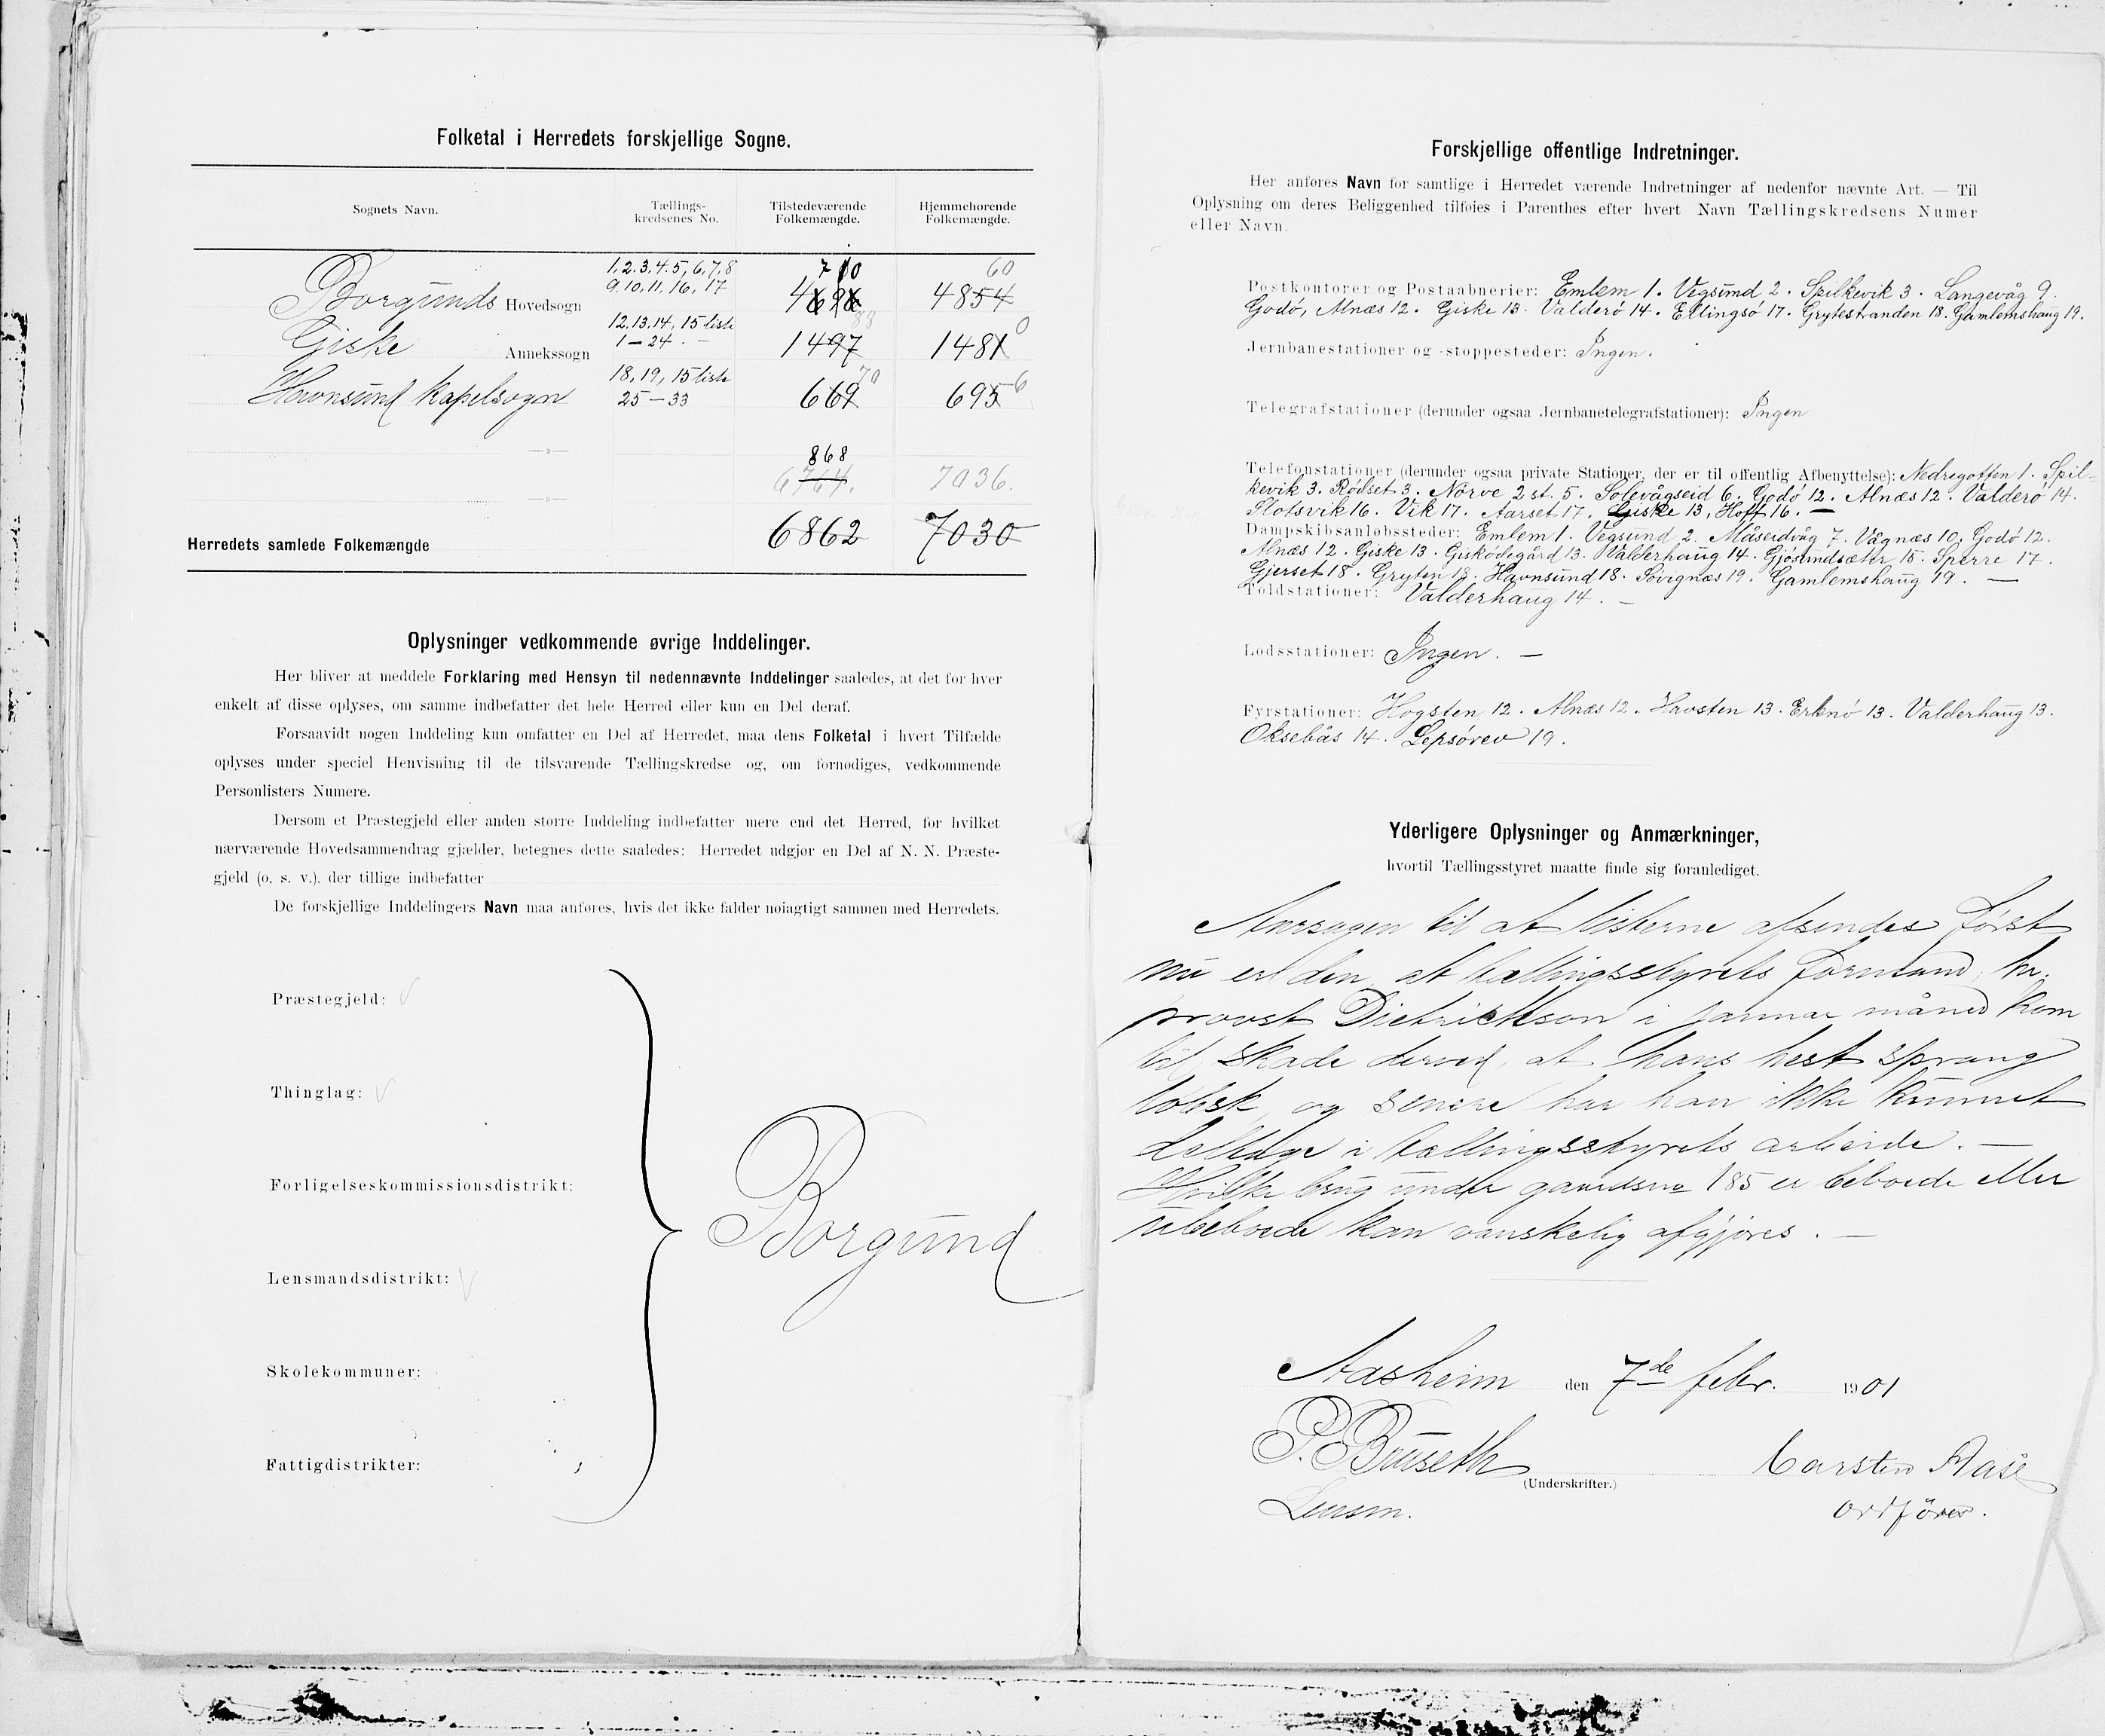 Folketal i Herredets forskjellige Sogne.
Sognets Navn.
Tællings-
kredsenes No.
Tilstedeværende
Folkemængde.
Hjemmehørende
Folkemængde.
Borgunds Hovedsogn
1, 2. 3. 4. 5, 6, 7, 8
9. 10. 11. 16, 17
710
60
4854
Giske Annekssogn
12. 13. 14, 15 liste
1 — 24
88
1497
0
1481
Havnsund kapelsogn
18, 19, 15 liste
25 — 33
70
669
6
695
—»—
868
6764.
7036.
—»—
Herredets samlede Folkemængde 6862 7030
Oplysninger vedkommende øvrige Inddelinger.
Her bliver at meddele Forklaring med Hensyn til nedennævnte Inddelinger saaledes, at det for hver
enkelt af disse oplyses, om samme indbefatter det hele Herred eller kun en Del deraf.
Forsaavidt nogen Inddeling kun omfatter en Del af Herredet, maa dens Folketal i hvert Tilfælde
oplyses under speciel Henvisning til de tilsvarende Tællingskredse og, om fornødiges, vedkommende
Personlisters Numere.
Dersom et Præstegjeld eller anden større Inddeling indbefatter mere end det Herred, for hvilket
nærværende Hovedsammendrag gjælder, betegnes dette saaledes: Herredet udgjør en Del af N. N. Præste-
gjeld (o. s. v.), der tillige indbefatter
De forskjellige Inddelingers Navn maa anføres, hvis det ikke falder nøiagtigt sammen med Herredets.
Præstegjeld:
Thinglag:
Forligelseskommissionsdistrikt:
Borgund
Lensmandsdistrikt:
Skolekommuner:
Fattigdistrikter:
Forskjellige offentlige Indretninger.
Her anføres Navn for samtlige i Herredet værende Indretninger af nedenfor nævnte Art. — Til
Oplysning om deres Beliggenhed tilføies i Parenthes efter hvert Navn Tællingskredsens Numer
eller Navn.
Postkontorer og Postaabnerier: Emlem 1. Vegsund 2. Spilkevik 3. Langevåg 9.
Godö, Alnæs 12. Giske 13. Valderö 14. Ellingsö 17. Grytestranden 18. Gamlemshaug 19.
Jernbanestationer og -stoppesteder: Ingen.
Telegrafstationer (derunder ogsaa Jernbanetelegrafstationer): Ingen
Telefonstationer (derunder ogsaa private Stationer, der er til offentlig Afbenyttelse): Nedregotten 1. Spil-
kevik 3. Rödset 3. Nörve 2 st. 5. Solevågseid 6. Godö 12. Alnæs 12. Valderö 14.
Slotsvik 16. Vik 17. Aarset 17. Giske 13, Hoff 16. —
Dampskibsanløbssteder: Emlem 1. Vegsund 2. Måseidvåg 7. Vegnæs 10. Godö 12.
Alnæs 12. Giske 13. Gisködegård 13. Valderhaug 14. Gjösundsæter 15. Sperre 17.
Gjerset 18. Gryten 18. Havnsund 18. Sövignæs 19. Gamlemshaug 19. —
Toldstationer: Valderhaug 14. —
Lodsstationer: Ingen. —
Fyrstationer: Hogsten 12. Alnæs 12. Havsten 13. Erknö 13. Valderhaug 13.
Oksebås 14. Lepsörev 19.
Yderligere Oplysninger og Anmærkninger,
hvortil Tællingsstyret maatte finde sig foranlediget.
Aarsagen til at listerne afsendes först
nu er den, at tællingsstyrets formand, hr.
provst Dietrichson i januar måned kom
til skade derved, at hans hest sprang
löbsk, og senere har han ikke kunnet
deltage i tællingsstyrets arbeide. —
Hvilke brug under gaardsno 185 er beboede eller
ubeboede kan vanskelig afgjöres. —
Aasheim den 7de febr. 1901
P. Bruseth
Carsten Aase
(Underskrifter.)
Lensm.
ordförer.